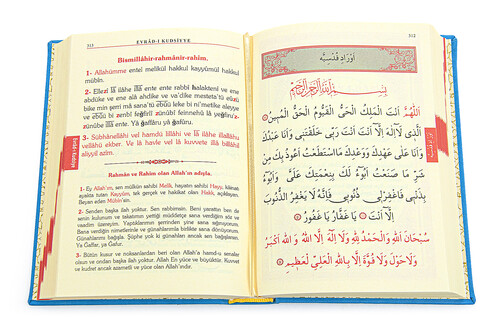 313
EVRÂD-I KUDSİYYE
Bismillâhir-rahmânir-rahîm.
1- Allahümme entel melikül hakkul kayyûmül hakkul
mübîn.
2- Ellezî lâ ilâhe illâ ente ente rabbî halaktenî ve ene
abdüke ve ene alâ ahdike ve va'dike mesteta'tü eûzü
bike min şerri mâ sana'tü ebûü leke bi ni'metike aleyye
ve ebûü bi zenbî feğfirlî zünûbî feinnehû lâ yeğfiru'z-
zünûbe illâ ente. Yâ ğaffâru yâ ğafûru.
3- Sübhânellâhi vel hamdü lillâhi ve lâ ilâhe illallâhu
vellâhü ekber. Ve lâ havle vel lâ kuvvete illâ billâhil
aliyyil azîm.
Rahman ve Rahim olan Allah'ın adıyla.
1- Ey Allah'ım, sen mülkün sahibi Melik, hayatın sahibi Hayy, kâinatı
ayakta tutan Kayyûm, tek gerçek ve hakikat olan Hak, açıklayan,
Beyan eden Mübîn'sin.
2- Senden başka ilah yoktur. Sen rabbimsin. Beni yarattın ben de
senin kulunum ve takatımın yettiği müddetçe sana verdiğim ahd ve
vaadim üzereyim. Yaptıklarımın şerrinden yine sana sığınırım.
Sana verdiğin nimetlerle ve günahlarımla birlikte sana dönüyorum.
Günahlarımı bağışla. Şüphe yok ki günahları ancak sen bağışlarsın.
Ya Ğaffar, ya Ğafur.
3- Bütün kusur ve noksanlardan beri olan Allah'ı hamd Allah'a mahsus
olsun ve ondan başka ilah yoktur. Allah En yüce ve büyüktür. Kuvvet
ve kudret ancak azametli ve yüce olan Allah'ındır.
Evrâd-ı Kudsiyye
312
أَوْرَادِ قُدْسِيَّه
بِسْمِ اللهِ الرَّحْمٰنِ الرَّحِيمِ
اَللّٰهُمَّ اَنْتَ الْمَلِكُ الْحَيُّ الْقَيُّومُ الْحَقُّ الْمُبِينُ
الَّذِى لَا اِلٰهَ اِلَّا اَنْتَ اَنْتَ رَبِّى خَلَقْتَنِى وَاَنَا عَبْدُكَ
وَاَنَا عَلٰى عَهْدِكَ وَوَعْدِكَ مَا اسْتَطَعْتُ اَعُوذُ بِكَ مِنْ
شَرِّ مَا صَنَعْتُ اَبُوءُ لَكَ بِنِعْمَتِكَ عَلَىَّ وَاَبُوءُ
بِذَنْبِى فَاغْفِرْلِى ذُنُوبِى فَاِنَّهُ لَا يَغْفِرُ الذُّنُوبَ
اِلَّا اَنْتَ يَا غَفَّارُ يَا غَفُورُ
سُبْحَانَ اللهِ وَالْحَمْدُ لِلّٰهِ وَلَا اِلٰهَ اِلَّا اللهُ وَاللهُ اَكْبَرُ
وَلَا حَوْلَ وَلَا قُوَّةَ اِلَّا بِاللهِ الْعَلِىِّ الْعَظِيمِ